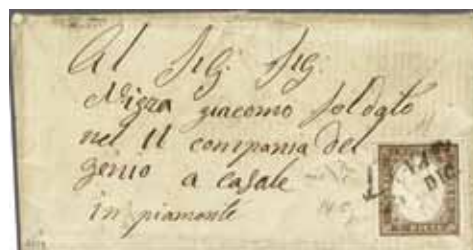 Al Sig: Sig:
Nigra giacomo Soldato
nel 11 compania del
genio a casale
in piamonte
DIC